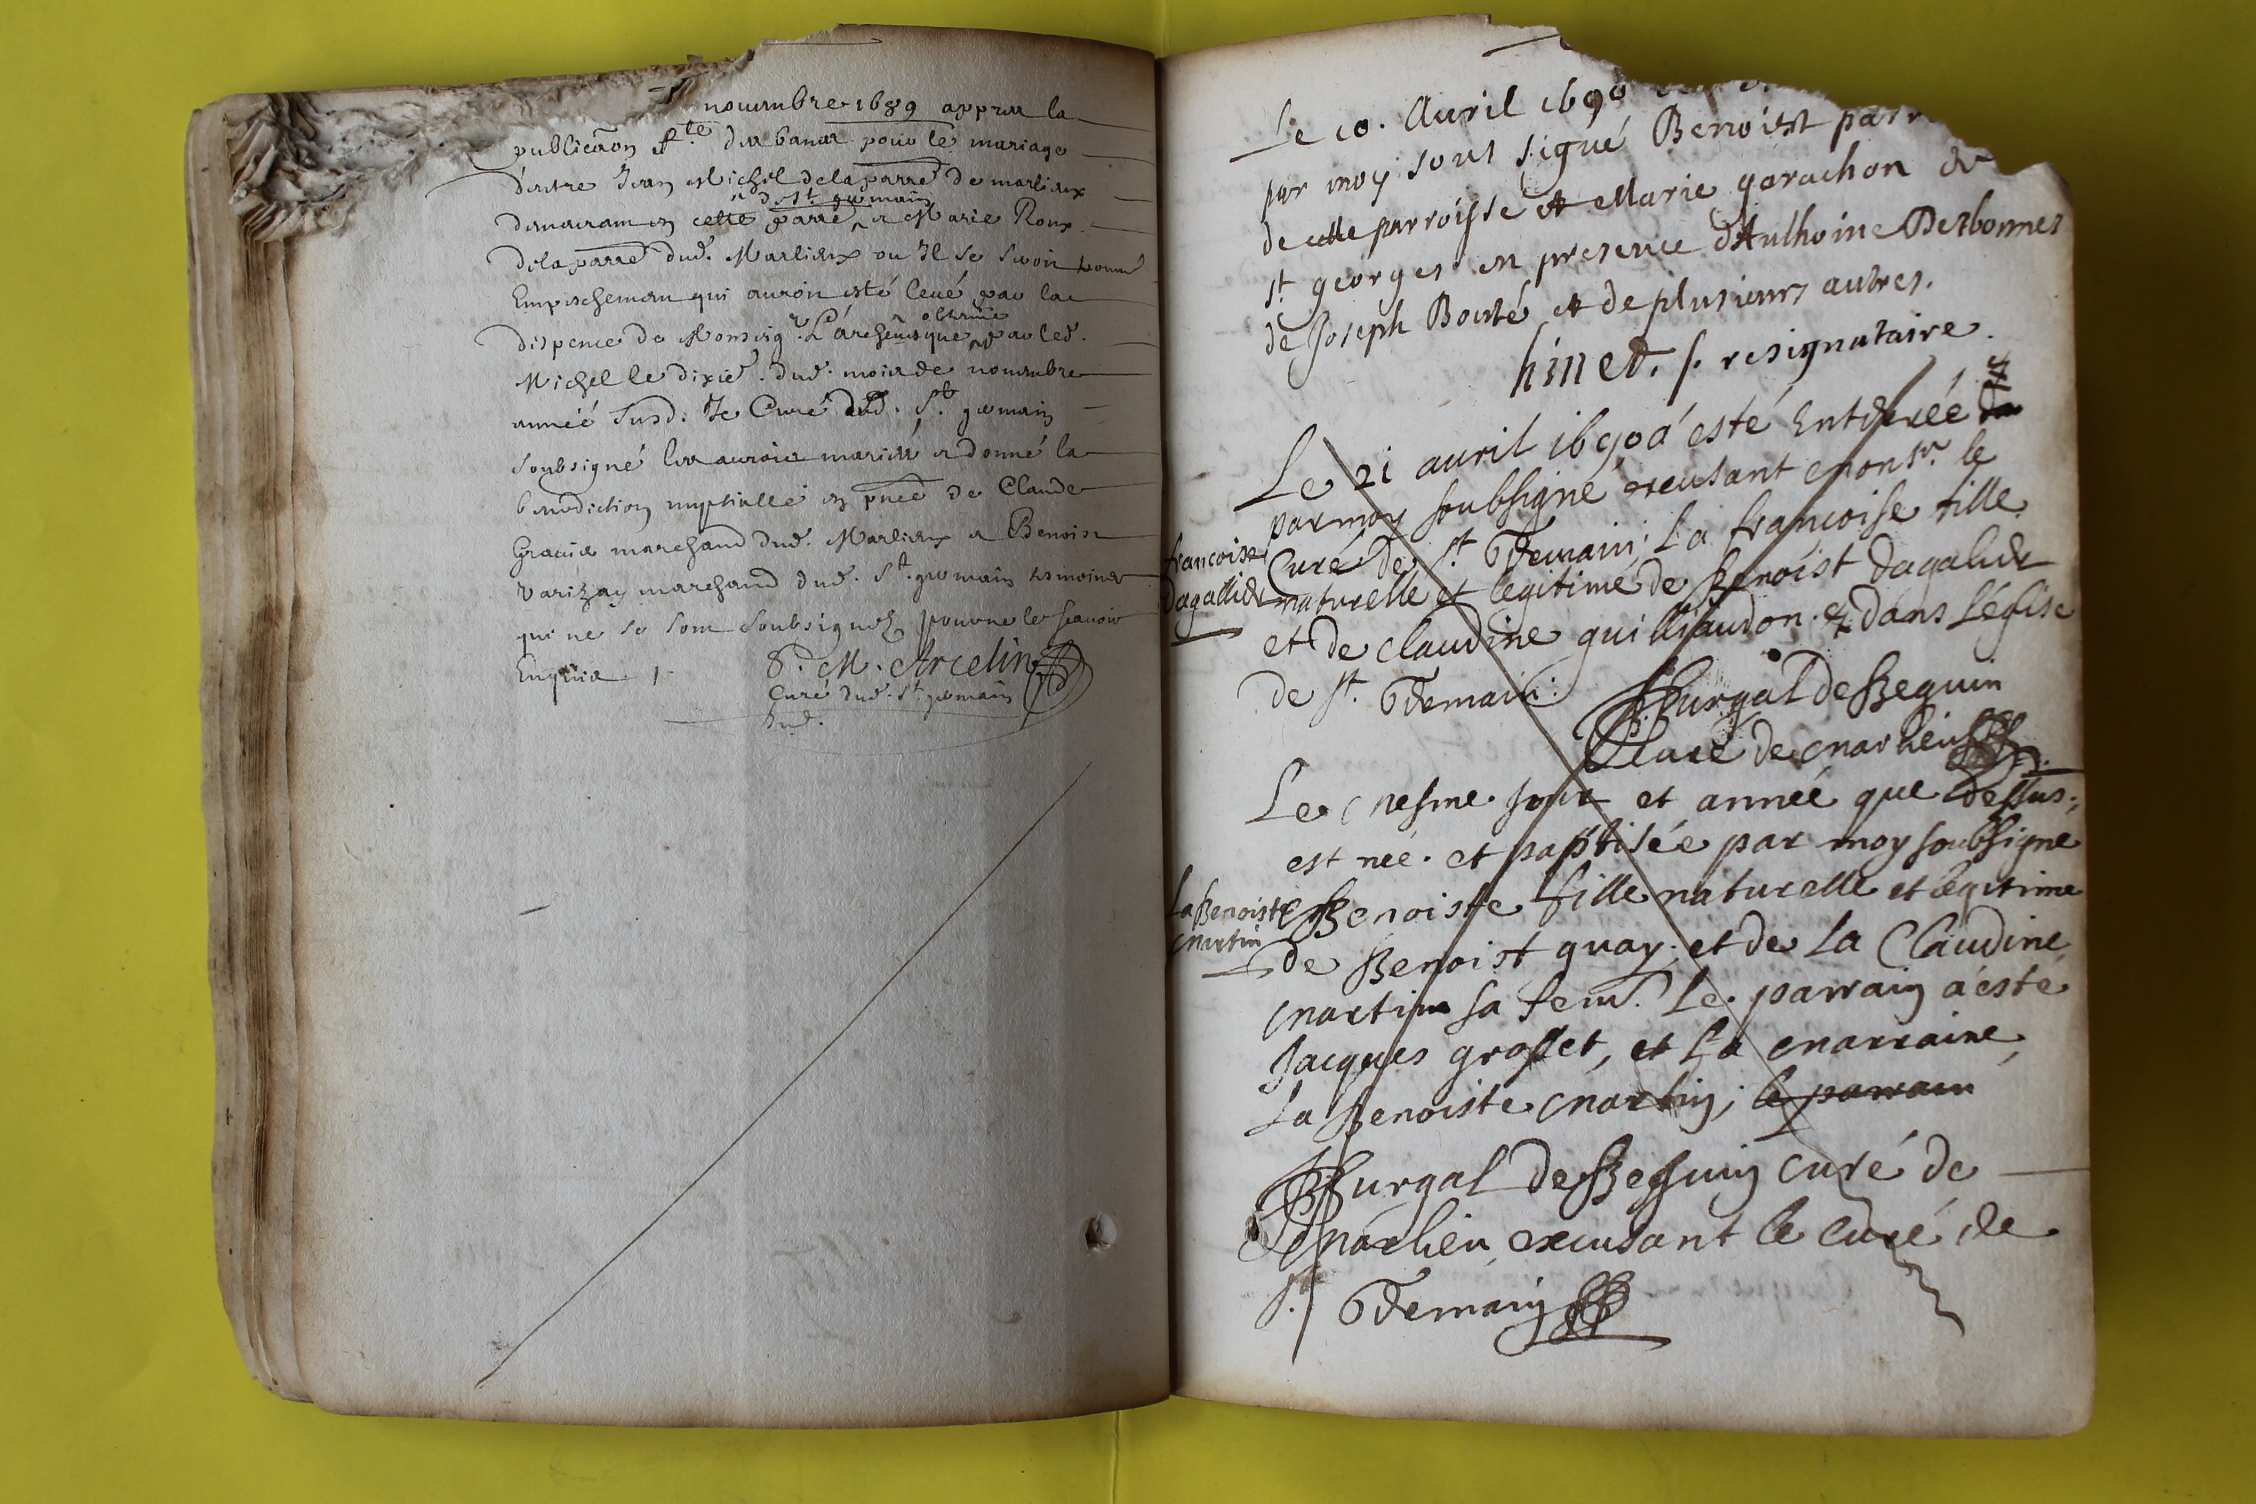 nouembre 1689 apprez la
publicaõn fte des bans pour le mariage
d'entre Jean Michel de la parre de marlieux
et de st. germain
demeurant en cette parre et Marie Roux
de la parre dud. Marlieux ou Il se seroit trouué
Empeschement qui auroit esté leué par la
obtenue
dispence de Monseigr. L'archeuesque par led.
Michel le dixie. dud. mois de nouembre
année susd. Je Curé dud. St. germain
soubsigné les aurois mariés et donné la
benediction nuptialle en pnce de Claude
marchand dud. Marlieux et Benoist
marchand dud. St. germain tesmoins
qui ne se sont soubsignez pour ne le scauoir
Enquis
M. Arcelin
Curé dud. St. germain
Le 10. Auril 1690
par moy sous signé Benoist
de celle parroisse et Marie garachon de
st. georges en presence d'Anthoine Desbonnes
de Joseph Bouté et de plusieurs autres.
hinet. p. resignataire.
Le 21 auril 1690 a esté Enterrée
par moy soubsigné excusant monsr. le
Curé de st. Germain; La francoise fille
francoise
dagallier
naturelle et legitime de Benoist dagalier
et de claudine guilliaudon. & dans L'eglise
de st. Germain:
Burgal de Beguin
Curé de marlieu
Le mesme jour et année que dessus;
est née. et baptisée par moy soubsigne
La Benoiste
martin
Benoiste fille naturelle et legitime
de Benoist guay; et de La Claudine
martin sa fem. Le parrain a esté
Jacques grosset, et La marraine
La Benoiste martin; le parrain
Burgal de Beguin curé de
Marlieu excusant le curé de
st. Germain